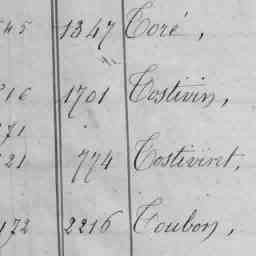 45 1347 Toré,
16 1701 Tostivin,
71
21 774 Tostiviret,
172 2216 Toubon,